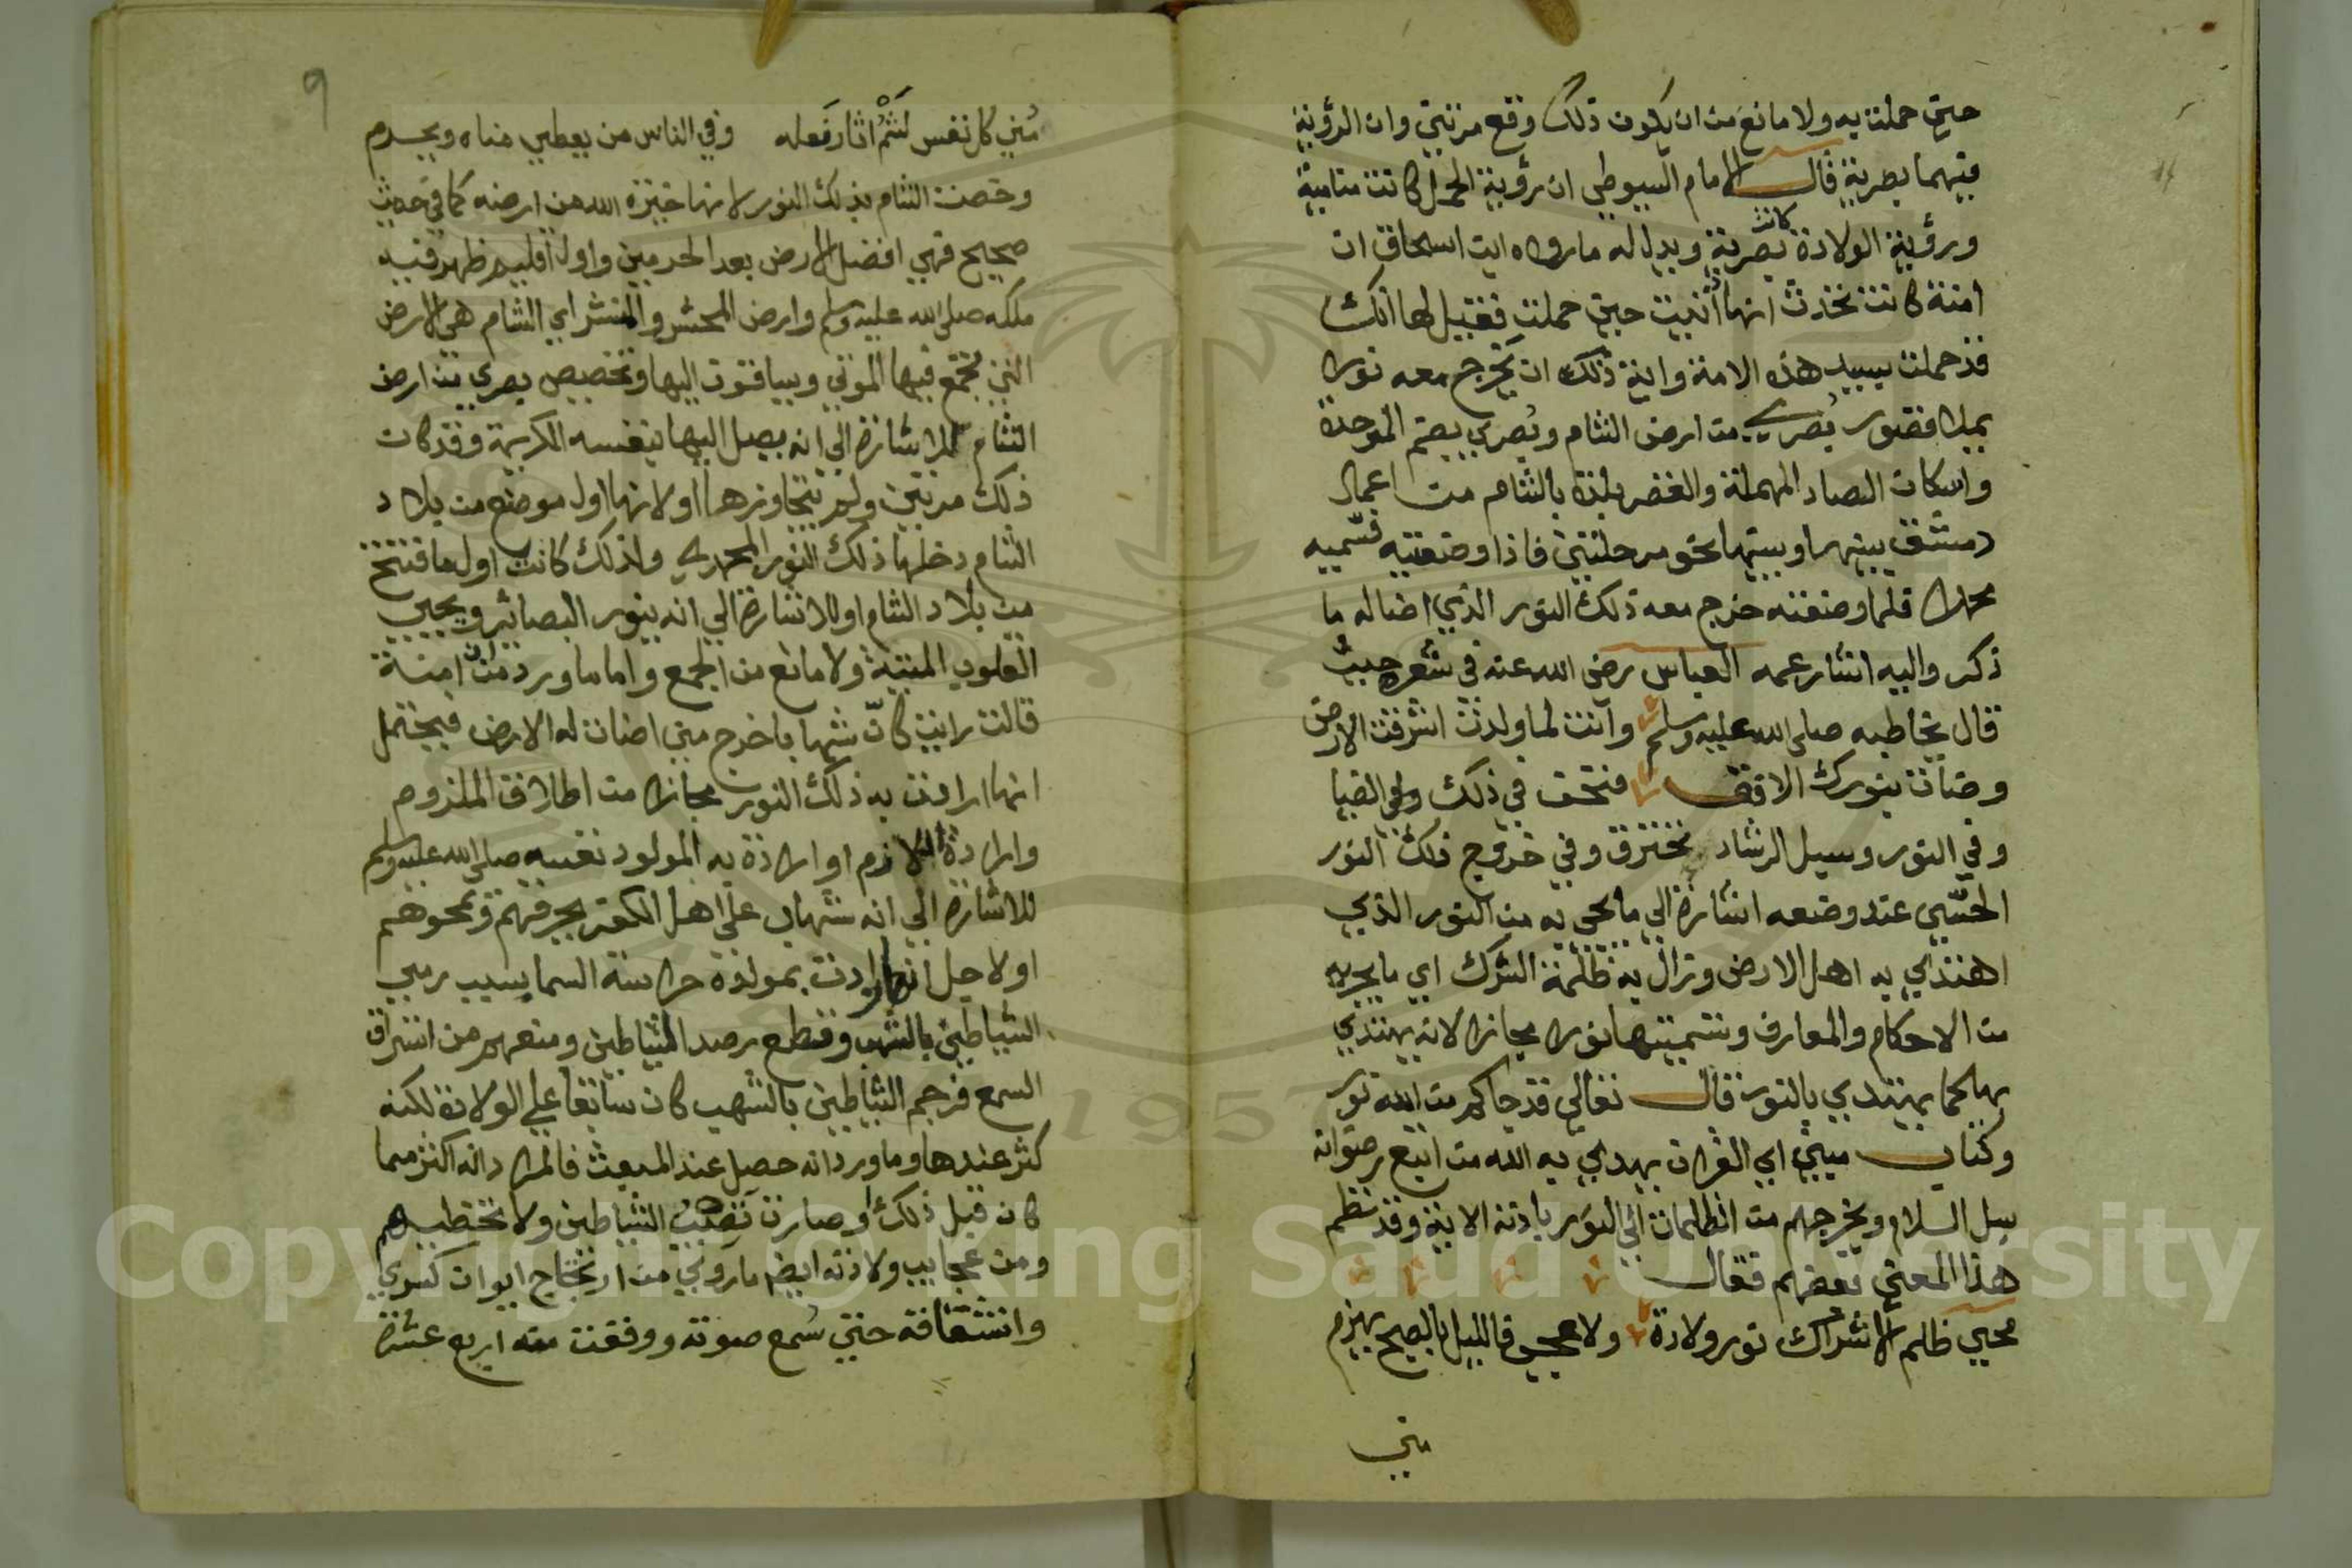 حين حملت به ولا مانع من ان يكون ذلك وقع مرتين وان الرؤية
فيهما بصرية قال الامام السيوطي ان رؤية الحمل كانت منامية
ورؤية الولادة كانت بصرية ويدل له ما رواه ابن اسحاق ان
امنة كانت تحدث انها أتيت حين حملت فقيل لها انك
قد حملت بسيد هذه الامة واية ذلك ان يخرج معه نورا
يملا قصور بُصرى من ارض الشام وبُصرى بضم الموحدة
واسكان الصاد المهملة والقصر بلدة بالشام من اعمال
دمشق بينها وبينها نحو مرحلتين فاذا وضعتيه فسّميه
محمدا فلما وضعته خرج معه ذلك النور الذي اضا له ما
ذكر واليه اشار عمه العباس رضى الله عنه في شعره حيث
قال يخاطبه صلى الله عليه وسلم وأنت لما ولدت اشرقت الارض
وضاءت بنورك الافق فنحن في ذلك وفي الضيا
وفي النور وسبل الرشاد نخترق وفي خروج ذلك النور
الحسّي عند وضعه اشارة الي ما يجي به من النور الذي
اهتدي به اهل الارض وزال به ظلمة الشرك اي ما يجي به
من الاحكام والمعارف وتسميتها نورا مجازا لانه يهتدي
بها كما يهتدي بالنور قال تعالي قد جاكم من الله نور
وكتاب مبين اي القران يهدي به الله من اتبع رضوانه
سبل السلام ويخرجهم من الظلمات الي النور باذنه الاية وقد نظم
هذا المعني بعضهم فقال
محي ظلم الاشراك نور ولادة ولا عجب فالليل بالصبح يهزم
مني
9
مُني كل نفس لَثْمُ اثار فعله وفي الناس من يعطي مناه ويحرم
وخصت الشام بذلك النور لانها خيرة الله من ارضه كما في حديث
صحيح فهي افضل الارض بعد الحرمين واول اقليم ظهر فيه
ملكه صلى الله عليه وسلم وارض المحشر والمنشر اي الشام هي الارض
التي تجتمع فيها الموتي ويساقون اليها وتخصيص بصري من ارض
الشام للاشارة الي انه يصل اليها بنفسه الكريمة وقد كان
ذلك مرتين ولم يتجاوزها اولا نها اول موضع من بلاد
الشام دخلها ذلك النور المحمدي ولذلك كانت اول ما فتح
من بلاد الشام او للاشارة الي انه ينور البصائر ويحيي
القلوب الميتة ولا مانع من الجمع واما ما ورد من ان امنة
قالت رايت كانّ شهابا خرج مني اضات له الارض فيحتمل
انها ارادت به ذلك النور مجازا من اطلاق الملزوم
وارادة اللازم او ارادة به المولود نفسه صلى الله عليه وسلم
للاشارة الي انه شهاب علي اهل الكفر يحرقهم ويمحوهم
او لاجل انها ارادت بمولده حراسة السما بسبب رمي
الشياطين بالشهب وقطع رصد الشياطين ومنعهم من استراق
السمع فرجم الشياطين بالشهب كان سابقا علي الولادة لكنه
كثر عندها وما ورد انه حصل عند المبعث فالمراد انه اكثر مما
كان قبل ذلك او صارت تصيب الشياطين ولا تخطيهم
ومن عجايب ولادته ايضا ما روي من ارتجاج ايوان كسري
وانشقاقه حتي سُمع صوته ووقعت منه اربع عشرة
Copyright © King Saud University
1957